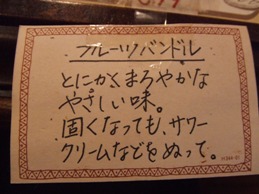 フルーツバンドル
とにかくまろやかな
やさしい味。
固くなっても、サワー
クリームなどをぬって。